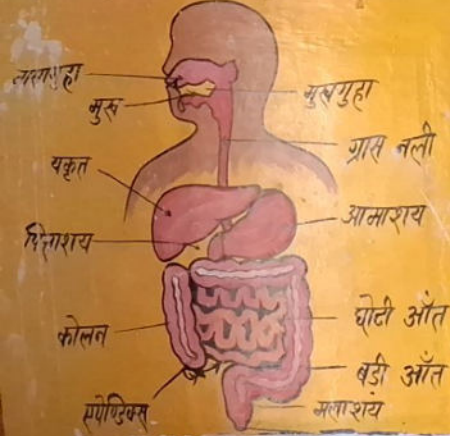 मुख
यकृत
पित्ताशय
कोलन
एपेण्डिक्स
मुखगुहा
ग्रास नली
आमाशय
छोटी आँत
बडी आँत
मलाशय